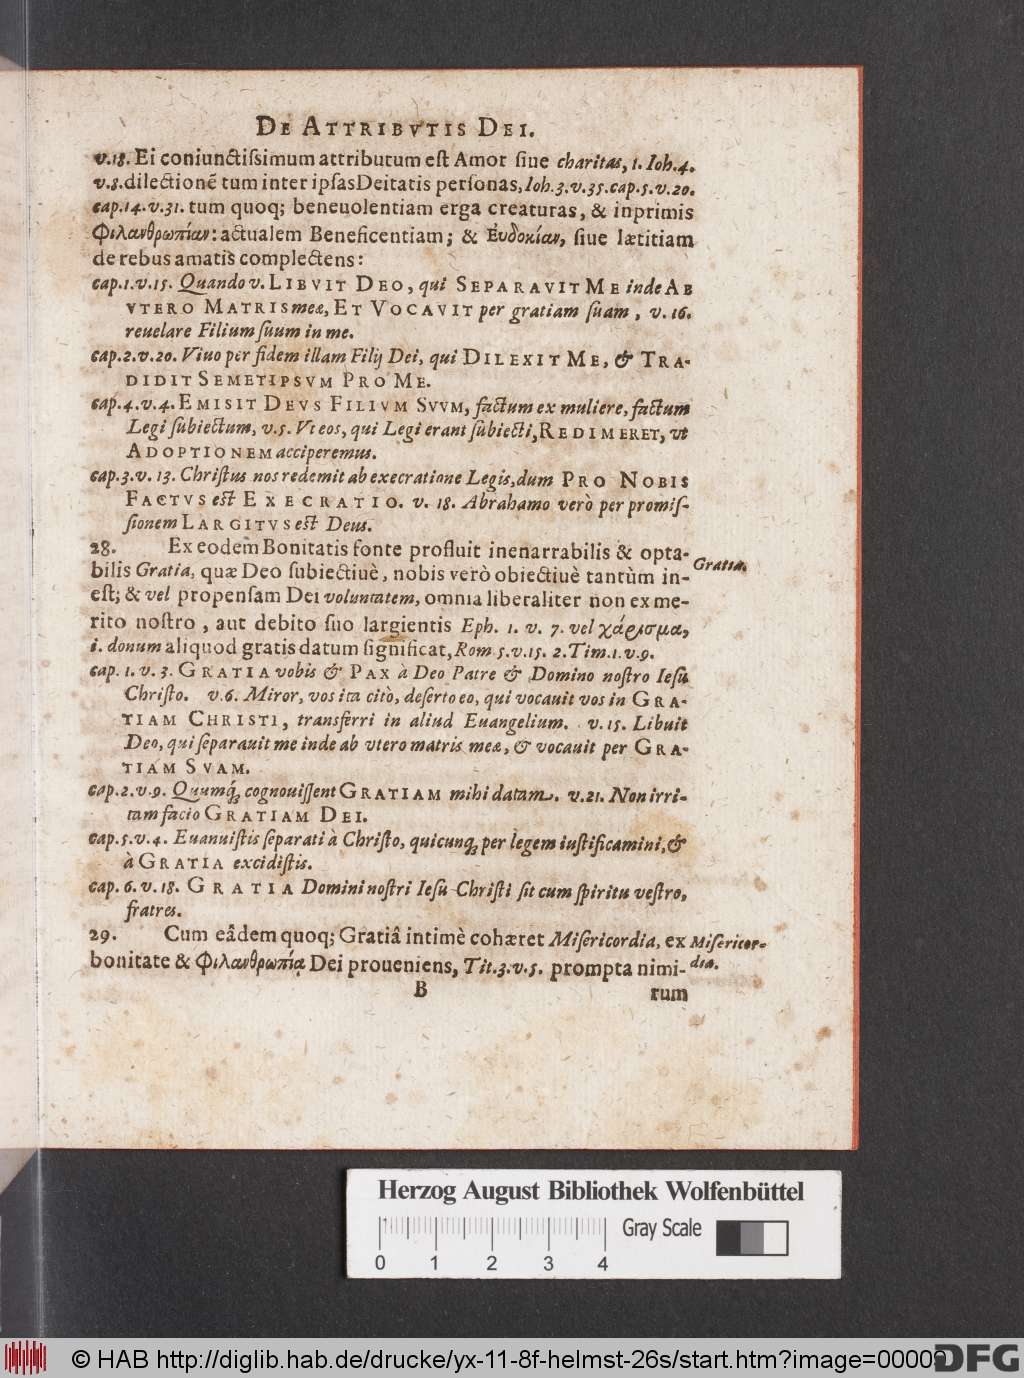 DE ATTRIBVTIS DEI.
v.18. Ei coniunctiſsimum attributum eſt Amor ſiue charitas, 1. Ioh.4.
v.8. dilectionē tum inter ipſas Deitatis perſonas, Ioh.3.v.35. cap.5.v.20.
cap.14.v.31. tum quoq; beneuolentiam erga creaturas, & inprimis
Φιλανθρωπίαν: actualem Beneficentiam; & Ἐυδοκίαν, ſiue lætitiam
de rebus amatis complectens:
cap.1.v.15. Quando v. LIBVIT DEO, qui SEPARAVIT ME inde AB
VTERO MATRIS meæ, ET VOCAVIT per gratiam ſuam, v. 16.
reuelare Filium ſuum in me.
cap.2.v.20. Viuo per fidem illam Filij Dei, qui DILEXIT ME, & TRA-
DIDIT SEMETIPSVM PRO ME.
cap.4.v.4. EMISIT DEVS FILIVM SVVM, factum ex muliere, factum
Legi ſubiectum, v.5. Vt eos, qui Legi erant ſubiecti, REDIMERET, vt
ADOPTIONEM acciperemus.
cap.3.v. 13. Chriſtus nos redemit ab execratione Legis, dum PRO NOBIS
FACTVS eſt EXECRATIO. v. 18. Abrahamo verò per promiſ-
ſionem LARGITVS eſt Deus.
28. Ex eodem Bonitatis fonte profluit inenarrabilis & opta-
bilis Gratia, quæ Deo ſubiectiuè, nobis verò obiectiuè tantùm in-
eſt; & vel propenſam Dei voluntatem, omnia liberaliter non ex me-
rito noſtro, aut debito ſuo largientis Eph. 1. v. 7. vel χάρισμα,
i. donum aliquod gratis datum ſignificat, Rom 5.v.15. 2.Tim.1.v.9.
Gratia.
cap. 1. v. 3. GRATIA vobis & PAX à Deo Patre & Domino noſtro Ieſu
Chriſto. v.6. Miror, vos ita citò, deſerto eo, qui vocauit vos in GRA-
TIAM CHRISTI, transferri in aliud Euangelium. v.15. Libuit
Deo, qui ſeparauit me inde ab vtero matris meæ, & vocauit per GRA-
TIAM SVAM.
cap.2.v.9. Quumq́; cognouiſſent GRATIAM mihi datam. v.21. Non irri-
tam facio GRATIAM DEI.
cap.5.v.4. Euanuiſtis ſeparati à Chriſto, quicunq; per legem iuſtificamini, &
à GRATIA excidiſtis.
cap. 6. v. 18. GRATIA Domini noſtri Ieſu Chriſti ſit cum ſpiritu veſtro,
fratres.
29. Cum eâdem quoq; Gratiâ intimè cohæret Miſericordia, ex
bonitate & Φιλανθρωπίᾳ Dei proueniens, Tit.3.v.5. prompta nimi-
Miſericor-
dia.
B
rum
Herzog August Bibliothek Wolfenbüttel
0 1 2 3 4
Gray Scale
© HAB http://diglib.hab.de/drucke/yx-11-8f-helmst-26s/start.htm?image=00009
DFG